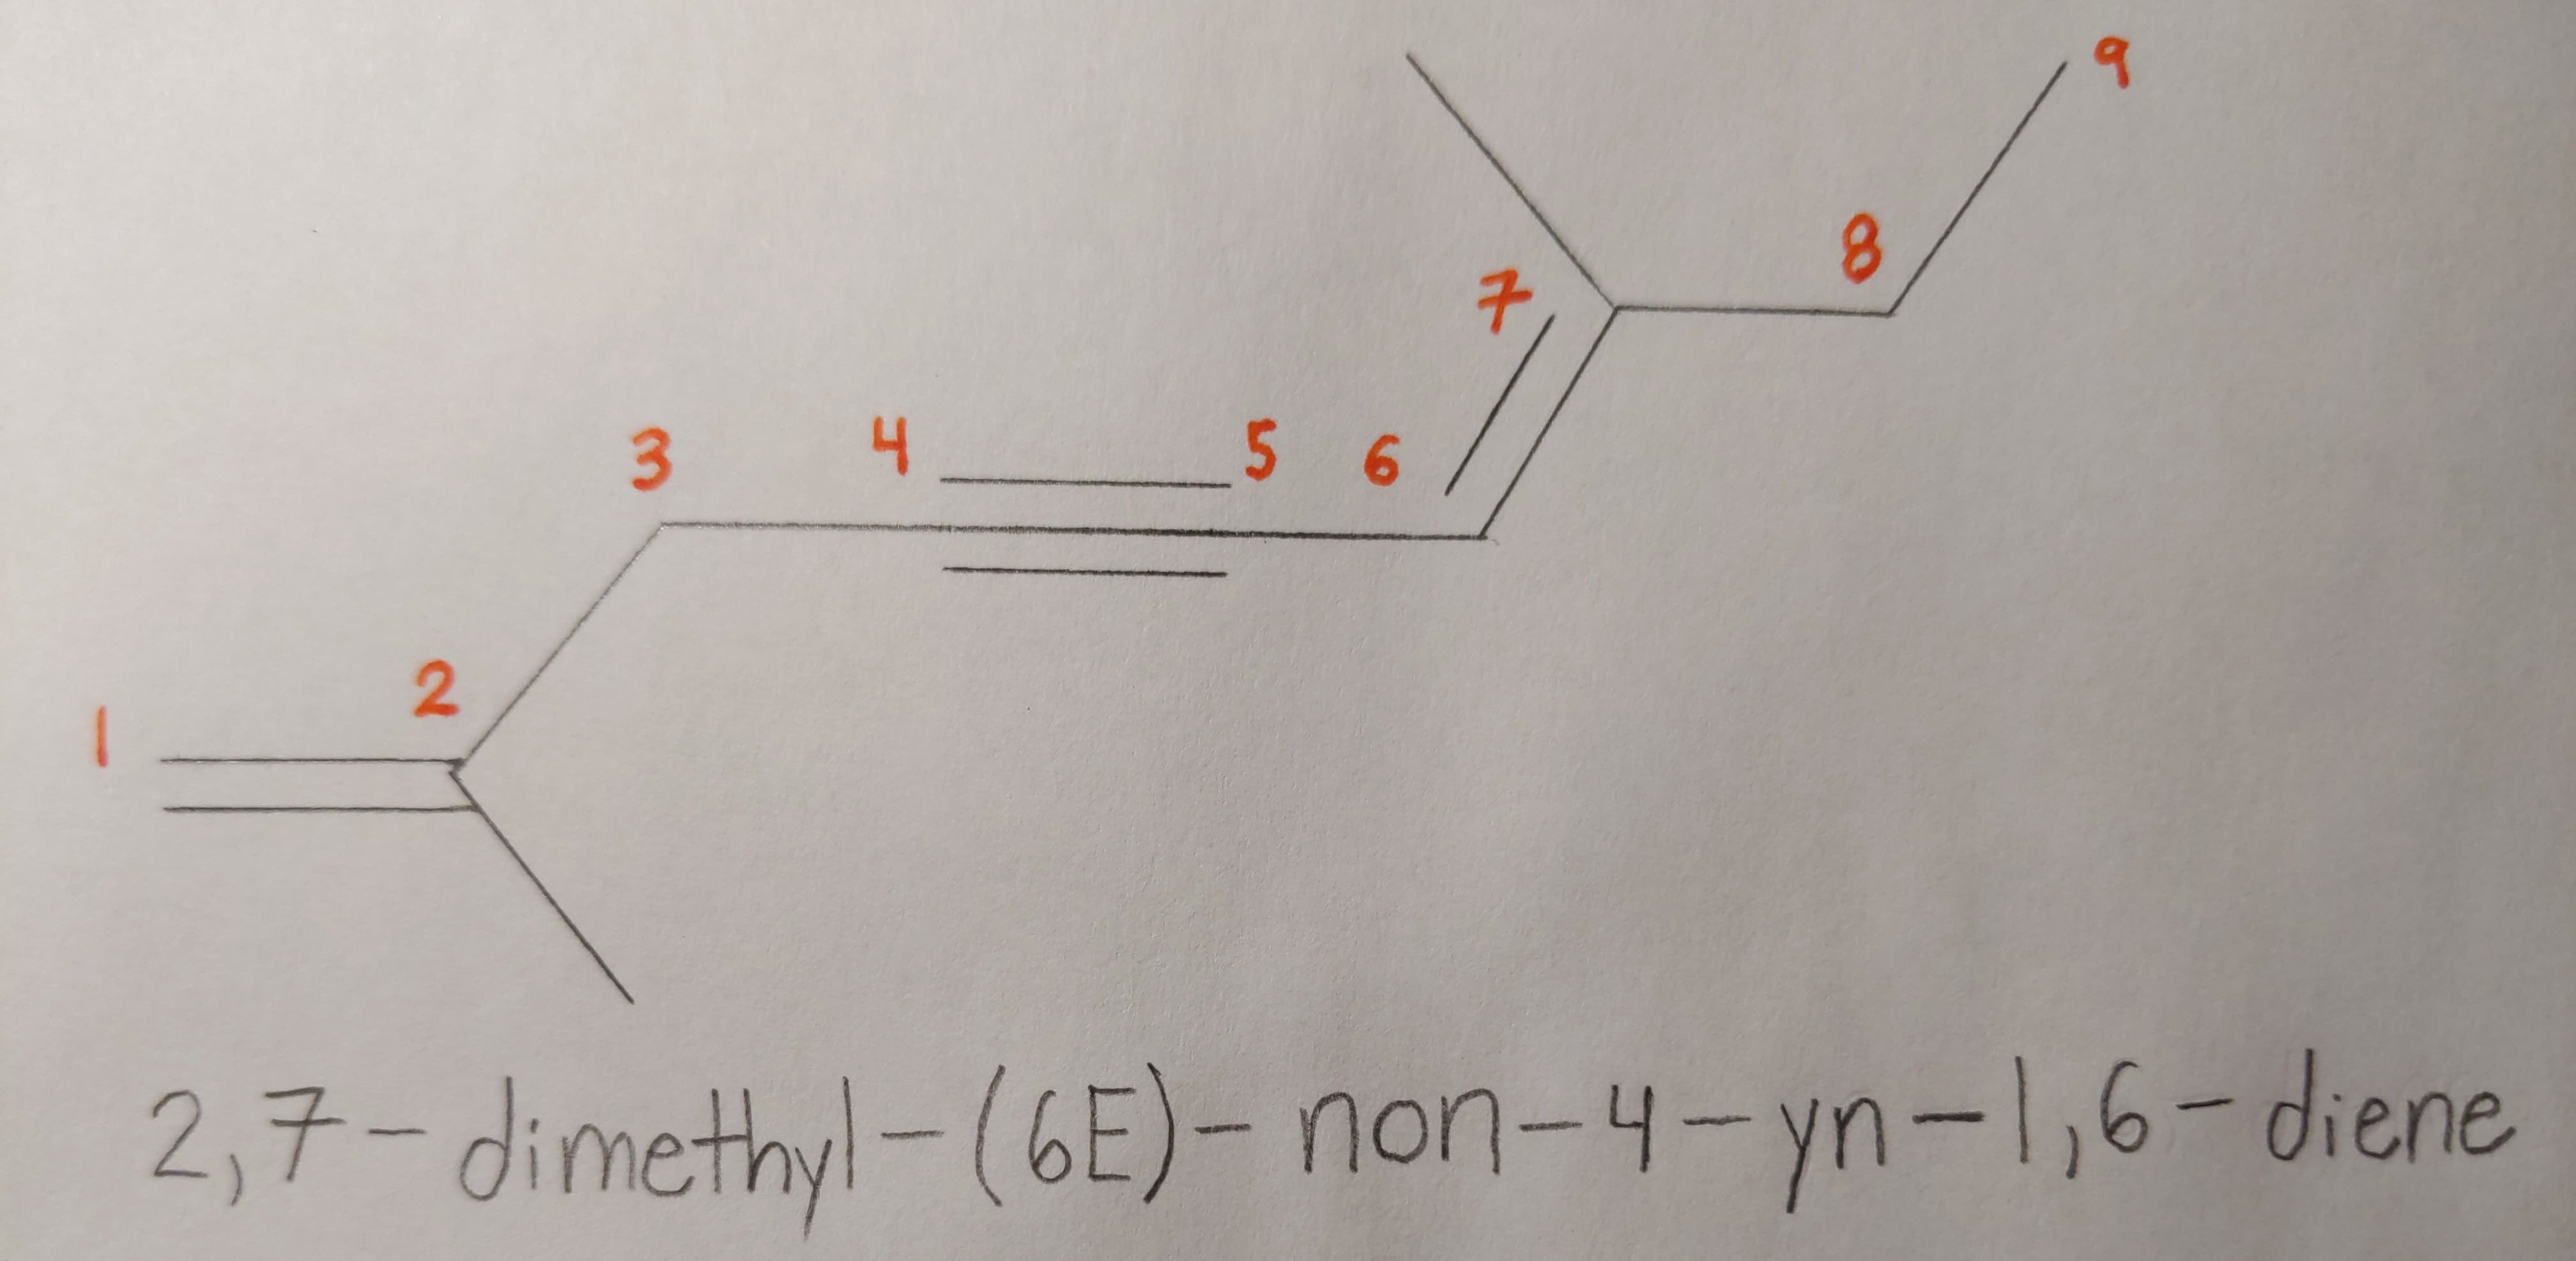 9
8
7
3 4 5 6
2
1
2,7-dimethyl-(6E)-non-4-yn-1,6-diene